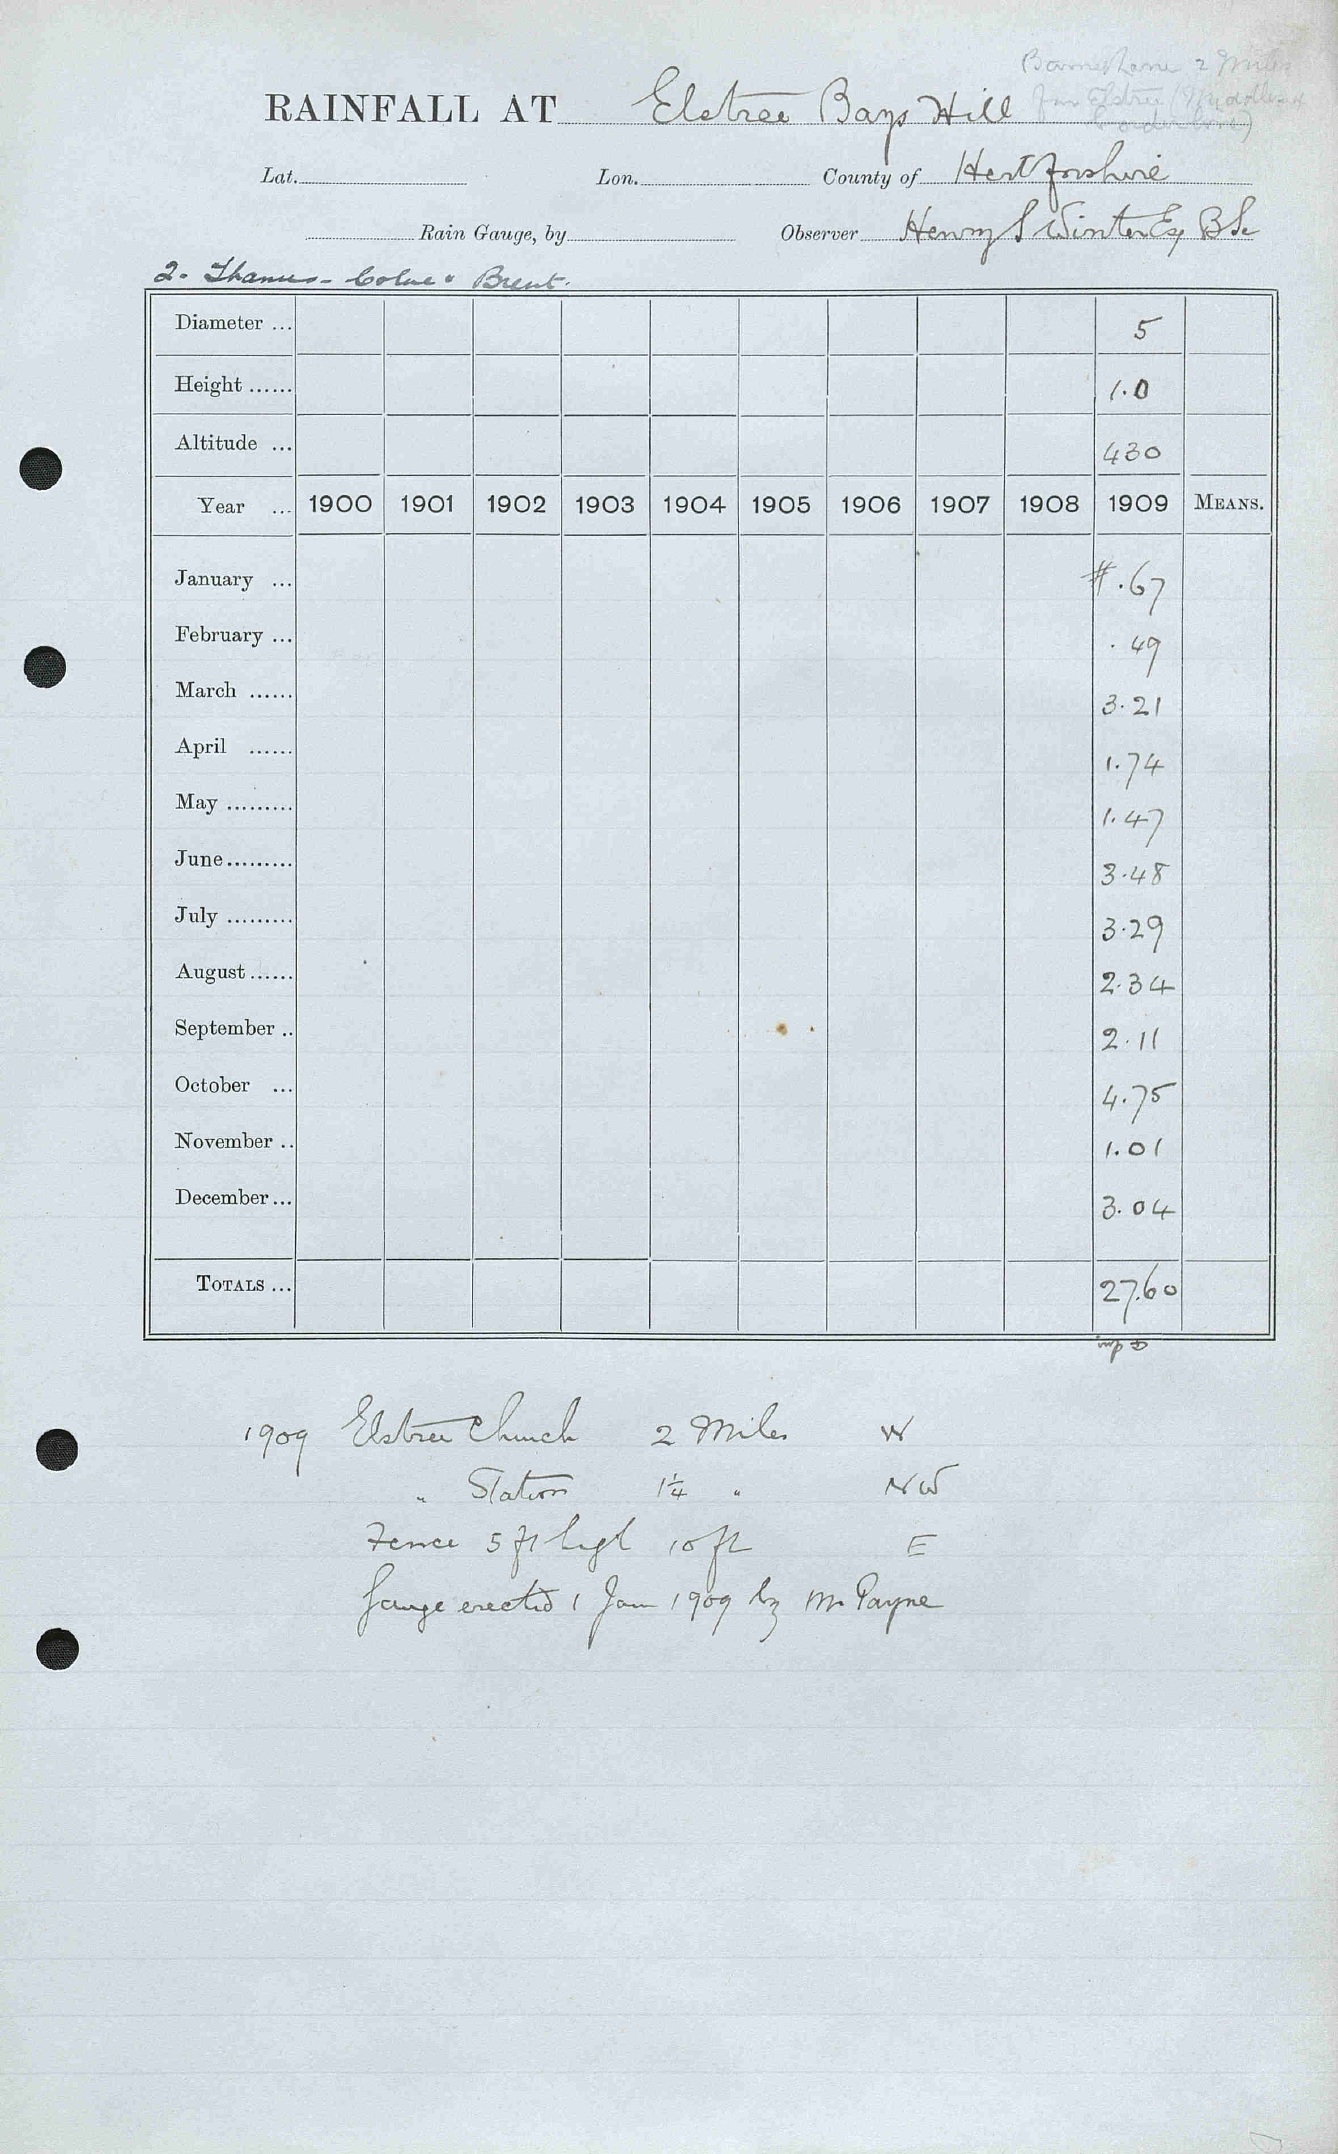 Barnet Lane 2 Miles
RAINFALL AT Elstree Bays Hill from Elstree (Middlesex
borderline)
Lat. Lon. County of Hertfordshire
Rain Gauge, by Observer Henry S Winter Esq BSc
2. Thames - Colne & Brent.
Diameter ... 5
Height ...... 1.0
Altitude ... 430
Year ... 1900 1901 1902 1903 1904 1905 1906 1907 1908 1909 MEANS.
January ... # .67
February ... .49
March ...... 3.21
April ...... 1.74
May ......... 1.47
June ......... 3.48
July ......... 3.29
August ...... 2.34
September .. 2.11
October ... 4.75
November .. 1.01
December ... 3.04
TOTALS ... 27.60
1909 Elstree Church 2 Miles W
" Station 1¼ " NW
Fence 5 ft high 10 ft E
Gauge erected 1 Jan 1909 by Mr Payne